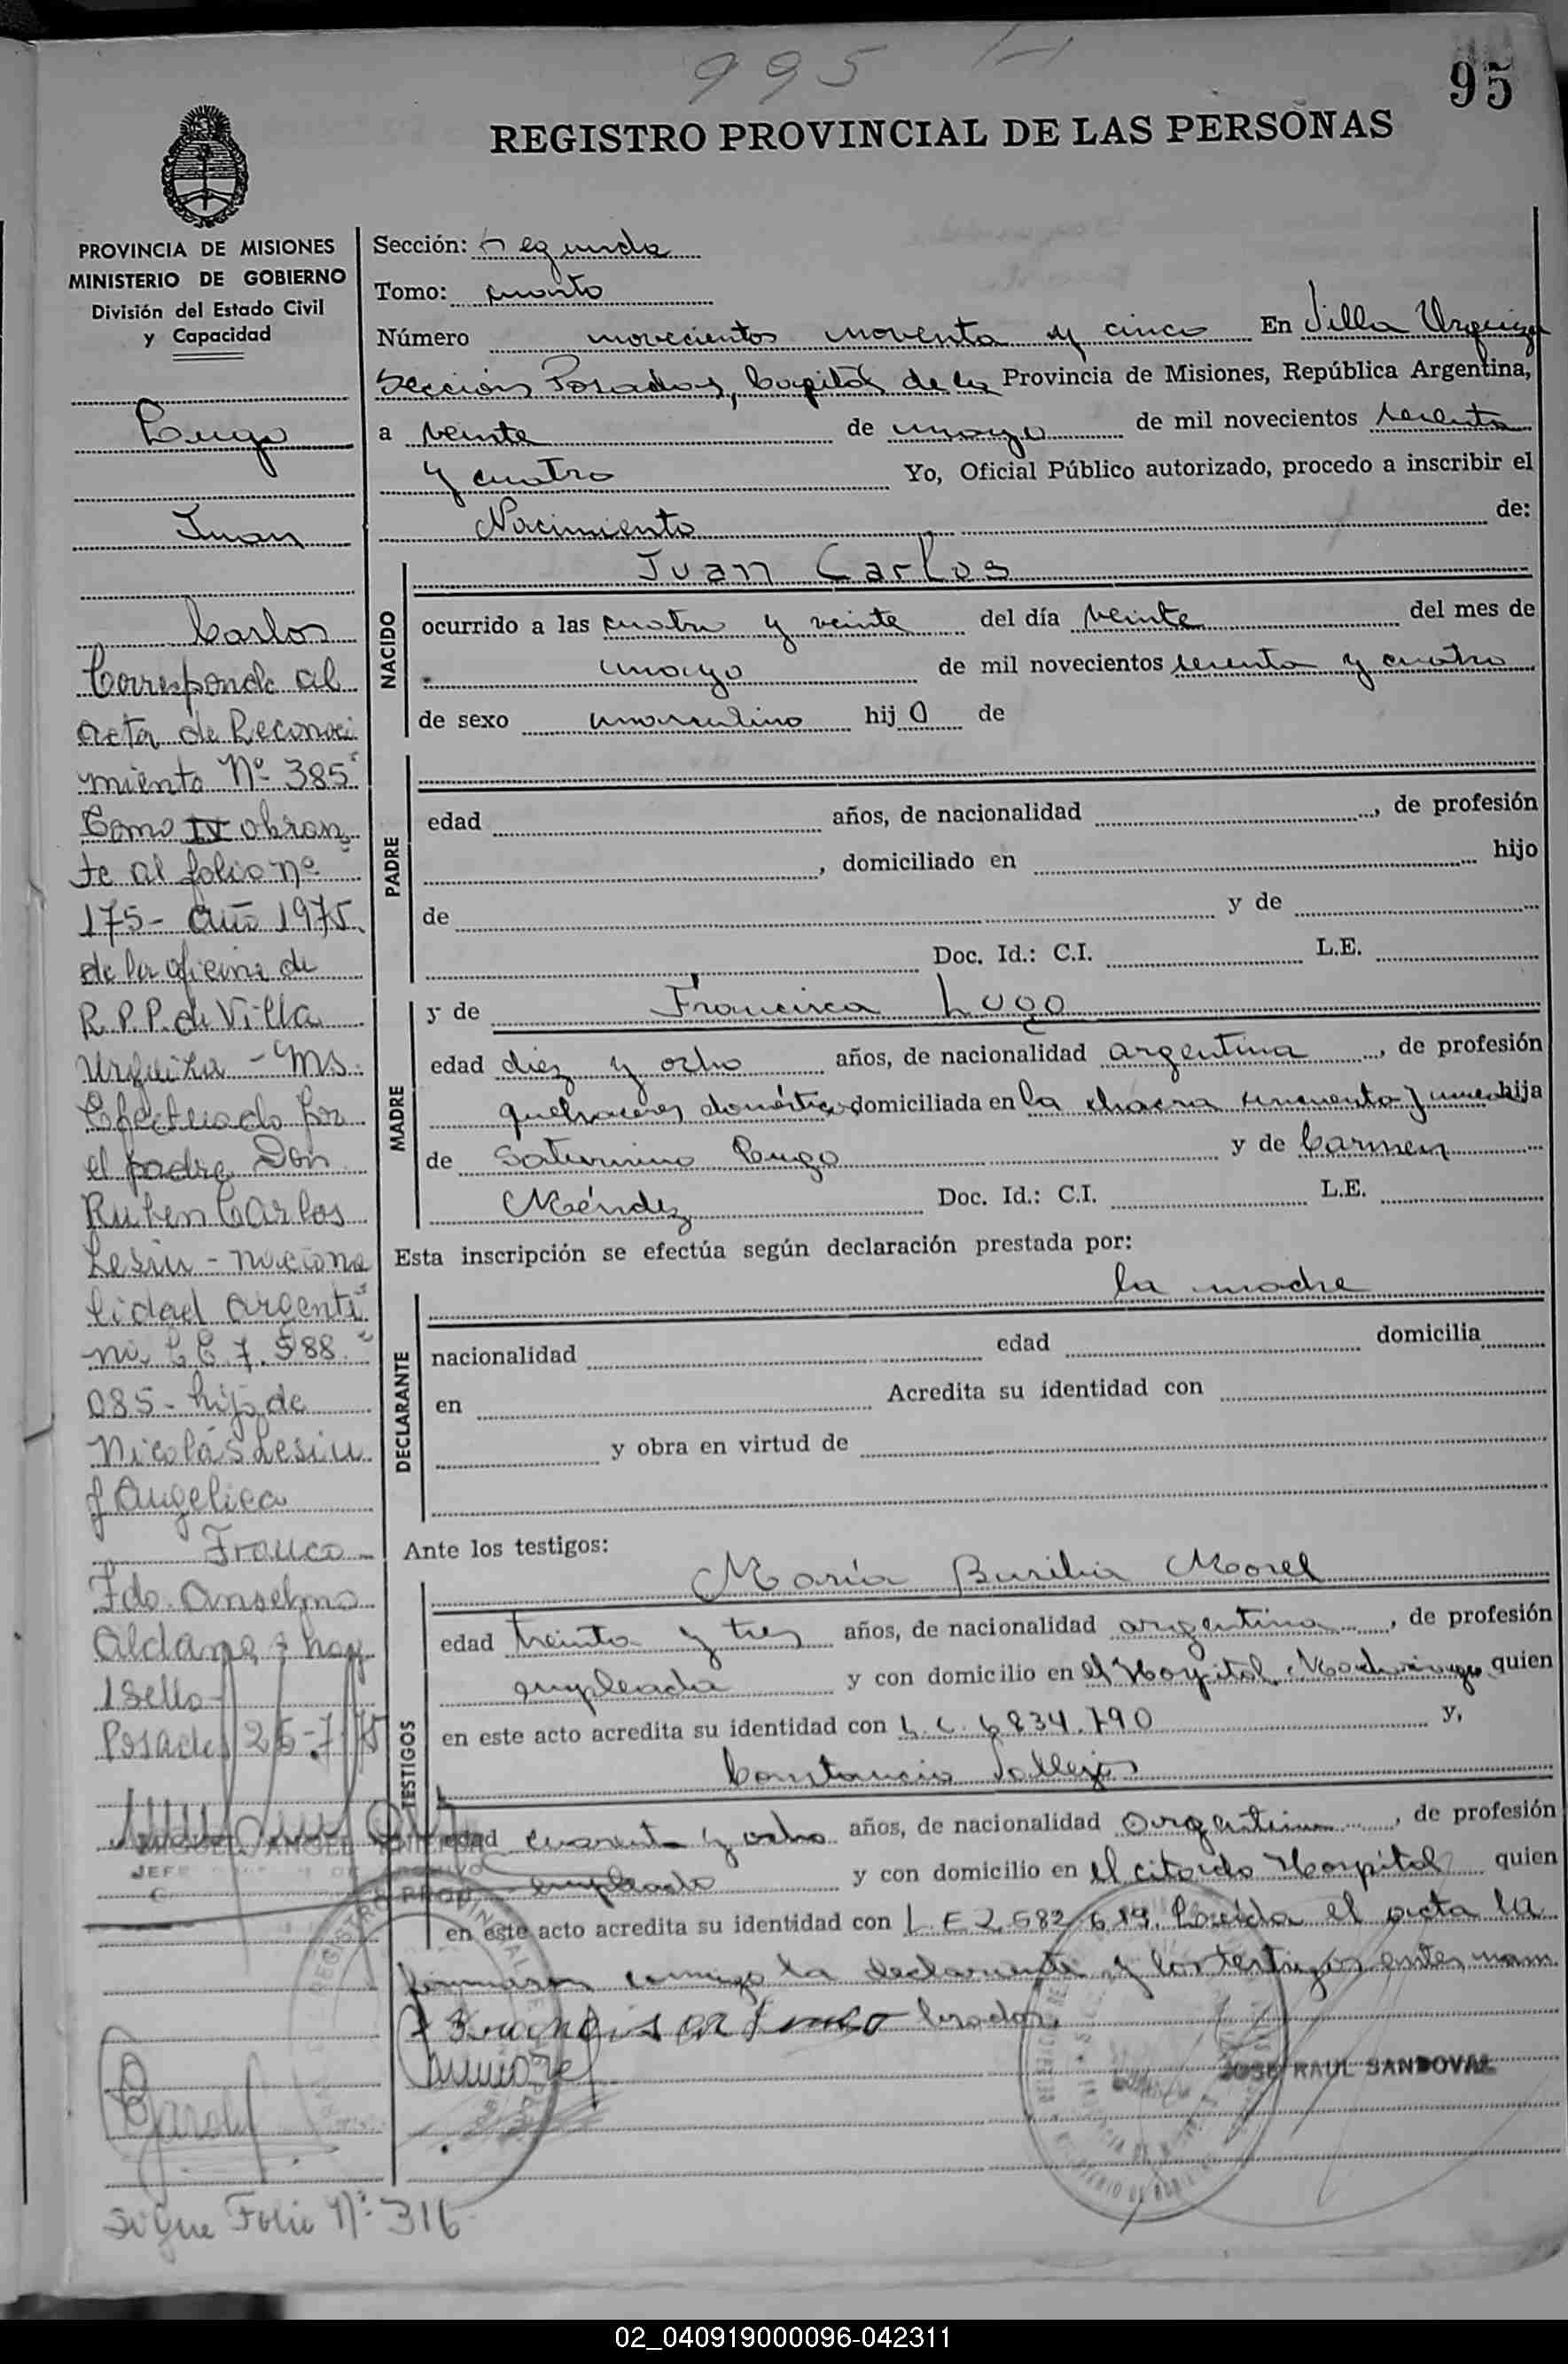 995
95
REGISTRO PROVINCIAL DE LAS PERSONAS
PROVINCIA DE MISIONES
MINISTERIO DE GOBIERNO
División del Estado Civil
y Capacidad
Lugo
Juan
Carlos
Corresponde al
acta de Reconoci
miento Nº 385
Tomo IV obran
te al folio nº
175 - año 1975
de la oficina de
R.P.P. de Villa
Urquiza - Ms.
Efectuado por
el padre Don
Ruben Carlos
Lesiu - naciona
lidad argenti
na 7.588.
085 - hijo de
Nicolás Lesiu
y Angelica
Franco
Fdo. Anselmo
Aldana, hay
1 Sello -
Posadas 26-7-75
MIGUEL ANGEL
JEFE ARCHIVO
Sigue Folio Nº 316
Sección: Segunda
Tomo: cuarto
Número novecientos noventa y cinco En Villa Urquiza
Sección Posadas, Capital de la Provincia de Misiones, República Argentina,
a veinte de mayo de mil novecientos setenta
y cuatro Yo, Oficial Público autorizado, procedo a inscribir el
Nacimiento de:
NACIDO
Juan Carlos
ocurrido a las cuatro y veinte del día veinte del mes de
mayo de mil novecientos setenta y cuatro
de sexo masculino hijo de
PADRE
edad años, de nacionalidad , de profesión
, domiciliado en hijo
de y de
Doc. Id.: C.I. L.E.
MADRE
y de Francisca Lugo
edad diez y ocho años, de nacionalidad argentina, de profesión
quehaceres domésticos domiciliada en la chacra cincuenta y nueve hija
de Saturnino Lugo y de Carmen
Méndez Doc. Id.: C.I. L.E.
Esta inscripción se efectúa según declaración prestada por:
DECLARANTE
la madre
nacionalidad edad domicilia
en Acredita su identidad con
y obra en virtud de
Ante los testigos:
TESTIGOS
María Morel
edad treinta y tres años, de nacionalidad argentina, de profesión
empleada y con domicilio en el Hospital Madariaga quien
en este acto acredita su identidad con L.C. 6834.790 y,
Constancio Vallejos
edad cuarenta y ocho años, de nacionalidad argentina, de profesión
empleado y con domicilio en el citado Hospital quien
en este acto acredita su identidad con L E 2.682.619. Leída el acta la
firmaron conmigo la declarante y los testigos antes nom
brados.
Francisca Lugo
JOSE RAUL SANDOVAL
02_040919000096-042311